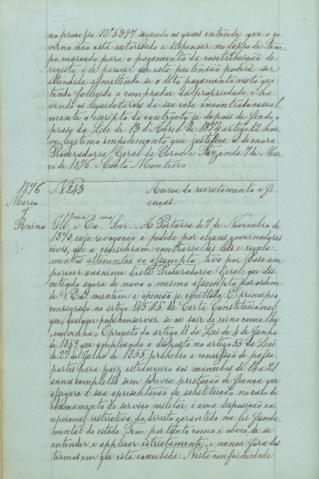 no processo Nº 5397 segundo as quaes entende que o go-
verno não está autorisado a dispensar no lapso de tem-
po marcado para o pagamento da contribuição de
registo, é de parecer que esta pretenção poderá ser
attendida admittindo-se o dito pagamento visto que
tendo fallecido o comprador da propriedade e ha-
vendo os requedores da sua casa encontrado casual-
mente o escripto do contracto já depois de findo o
praso da Lei de 13 de Abril de 1874 artigo 11 hou-
ve legitimo impedimento que justifica a demora
Procuradoria Geral da Corôa e Fazenda 7 de Mar-
ço de 1876 = Costa Monteiro
1876
Março
9
Reino
Nº 243
Ácerca do recrutamento e fi-
anças
Illmo e Exmo Snr = A Portaria de 7 de Novembro de
1873 cuja revogação é pedida por alguns governadores
civis, que a consideram contraria ás leis e regula-
mentos attinentes ao assumpto, teve por base um
parecer unanime desta Procuradoria Geral que dis-
cutindo agora de novo o mesmo assumpto por ordem
de V. Exª mantem a opinião já emittida. É principio
consagrado no artigo 145 § 5 da Carta Constitucional
que qualquer pode conservar-se ou sair do reino como lhe
convenha. O preceito do artigo 11 da Lei de 4 de Junho
de 1859 que ampliando o disposto no artigo 55 da Lei
de 27 de Julho de 1855 prohibe a concessão de passa-
portes para paiz estrangeiro aos mancebos de 14 a 21
annos completos sem previa prestação de fiança que
assegure a sua apresentação ou substituição no caso de
chamamento do serviço militar, é uma disposição ex-
cepcional restrictiva do direito garantido na lei funda-
mental do estado. Tem portanto como é obvio, de se
entender e applicar estrictamente, e nunca fóra dos
termos em que está concebida. Nesta conformidade